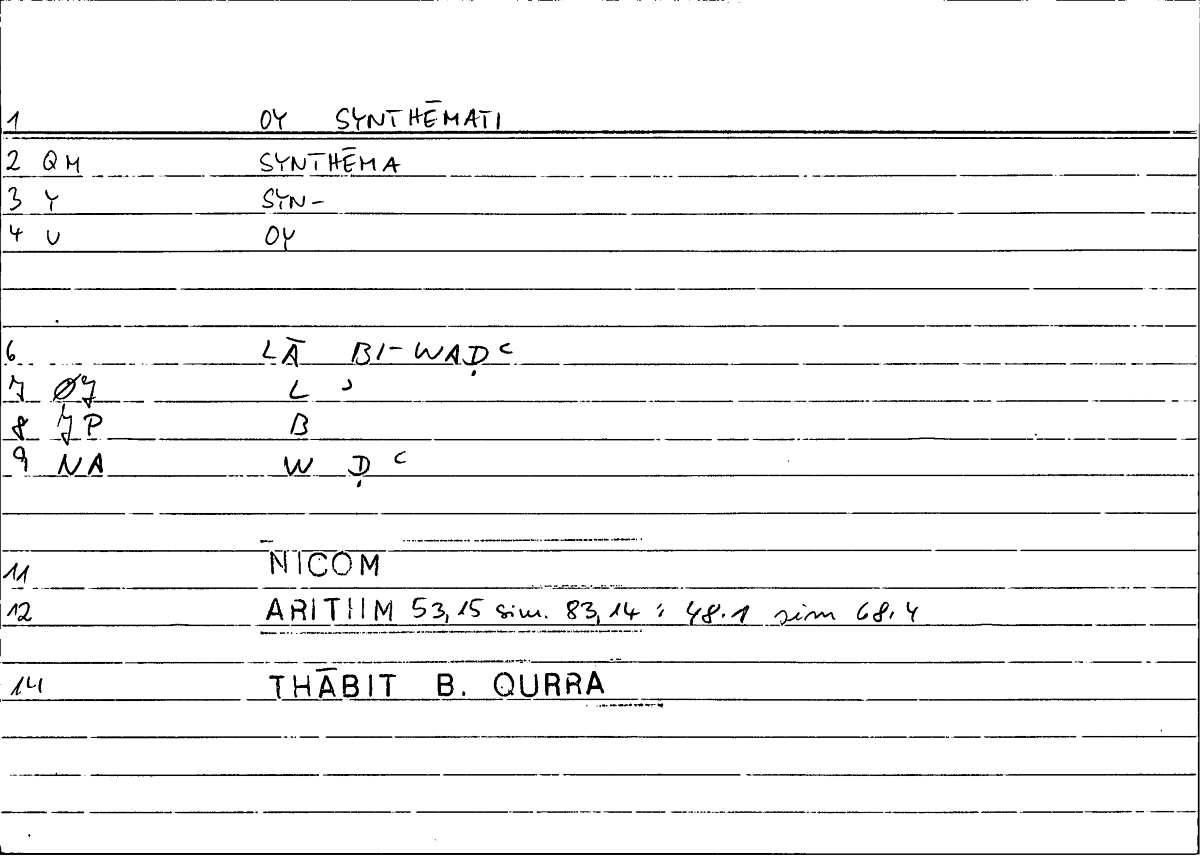 1 OY SYNTHĒMATI
2 QM SYNTHĒMA
3 Y SYN-
4 U OY
6 LĀ BI-WAḌ ͨ
7 ØJ L ʾ
8 JP B
9 NA W Ḍ ͨ
11 NICOM
12 ARITHM 53,15 sim. 83,14 : 48.1 sim 68.4
14 THĀBIT B. QURRA